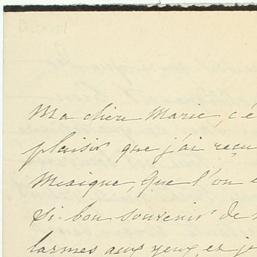 Ma chère Marie, c'é
plaisir que j'ai reçu
Mexique, que l'on
si bon souvenir de
larmes aux yeux, et je